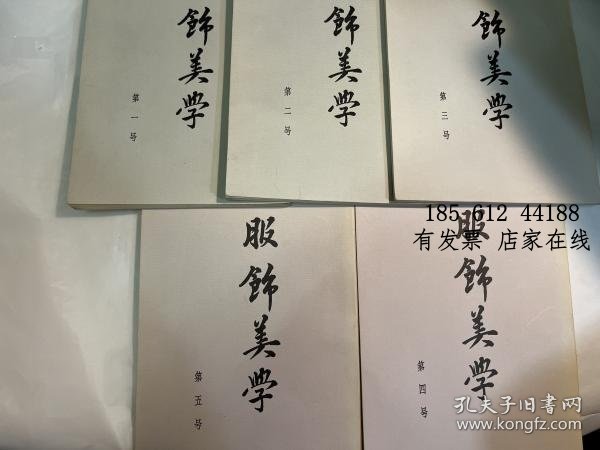 飾美学
第一号
飾美学
第二号
飾美学
第三号
服飾美学
第五号
服飾美学
第四号
185 612 44188
有发票 店家在线
孔夫子旧书网
www.kongfz.com